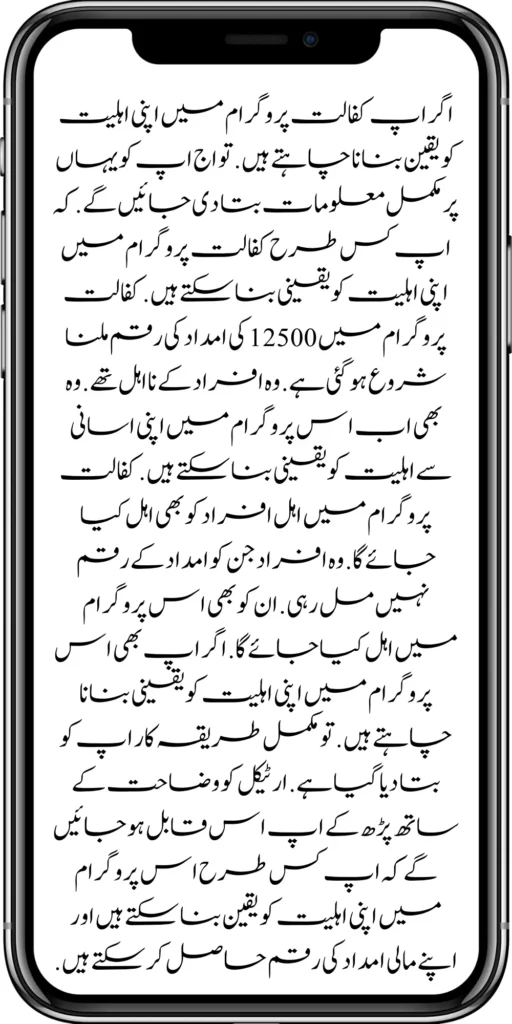 اگر اپ کفالت پروگرام میں اپنی اہلیت
کو یقین بنانا چاہتے ہیں. تو اج اپ کو یہاں
پر مکمل معلومات بتا دی جائیں گے. کہ
اپ کس طرح کفالت پروگرام میں
اپنی اہلیت کو یقینی بنا سکتے ہیں. کفالت
پروگرام میں 12500 کی امداد کی رقم ملنا
شروع ہو گئی ہے. وہ افراد کے نااہل تھے. وہ
بھی اب اس پروگرام میں اپنی اسانی
سے اہلیت کو یقینی بنا سکتے ہیں. کفالت
پروگرام میں اہل افراد کو بھی اہل کیا
جائے گا. وہ افراد جن کو امداد کے رقم
نہیں مل رہی. ان کو بھی اس پروگرام
میں اہل کیا جائے گا. اگر اپ بھی اس
پروگرام میں اپنی اہلیت کو یقینی بنانا
چاہتے ہیں. تو مکمل طریقہ کار اپ کو
بتا دیا گیا ہے. ارٹیکل کو وضاحت کے
ساتھ پڑھ کے اپ اس قابل ہو جائیں
گے کہ اپ کس طرح اس پروگرام
میں اپنی اہلیت کو یقین بنا سکتے ہیں اور
اپنے مالی امداد کی رقم حاصل کر سکتے ہیں.